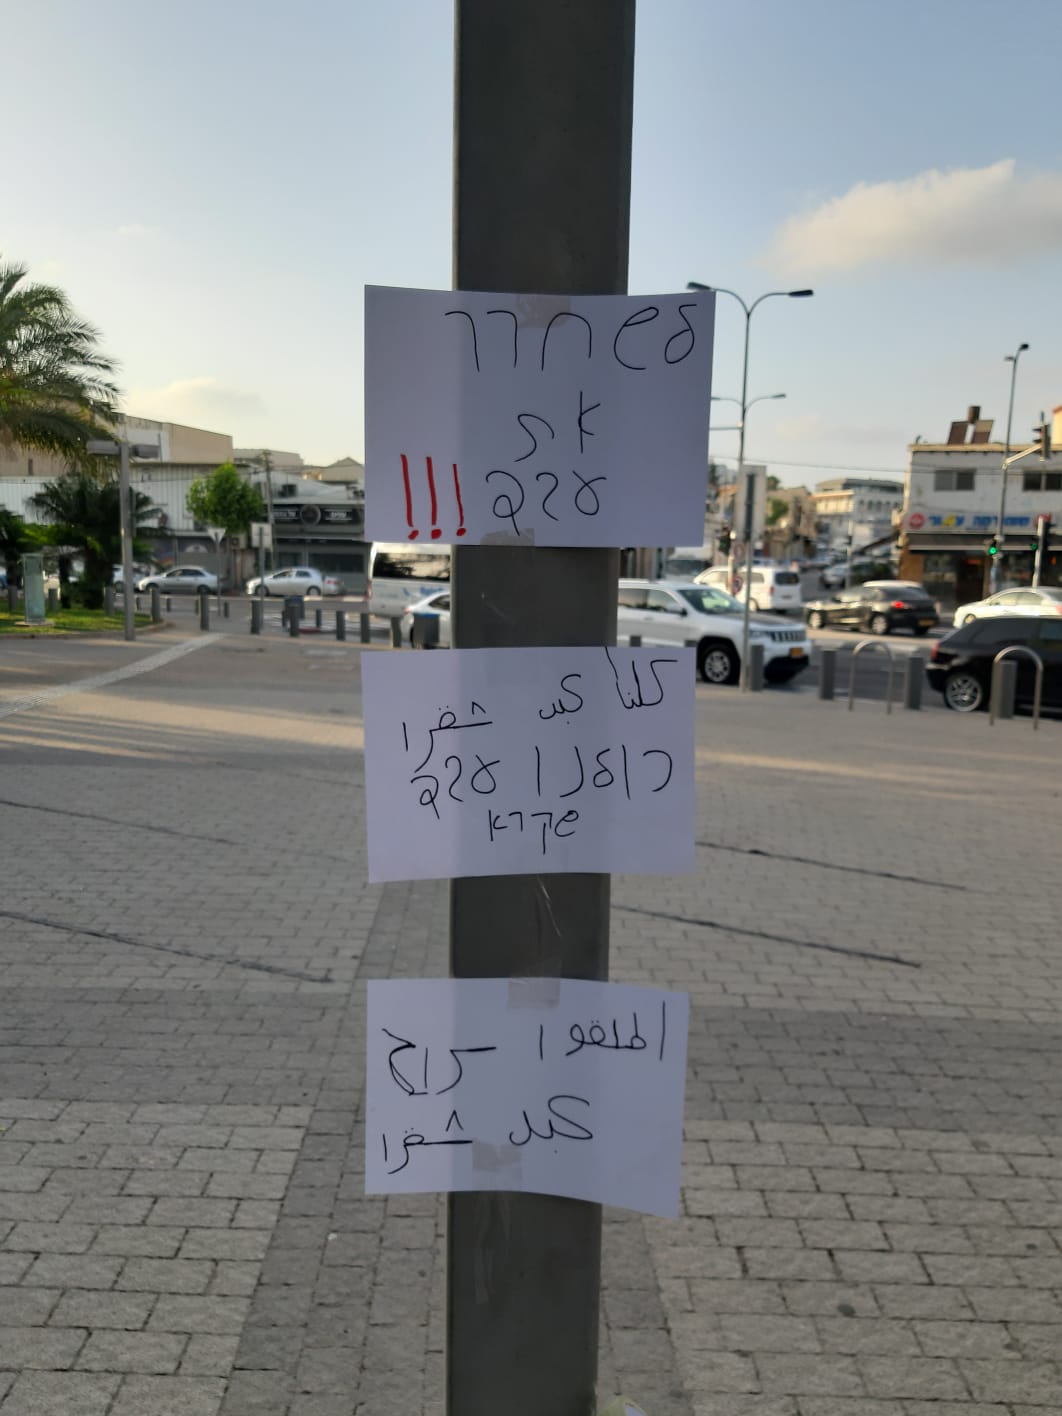 לשחרר
את
עבד !!!
كلنا عبد شقرا
כולנו עבד
שקרא
اطلقوا سراح
عبد شقرا